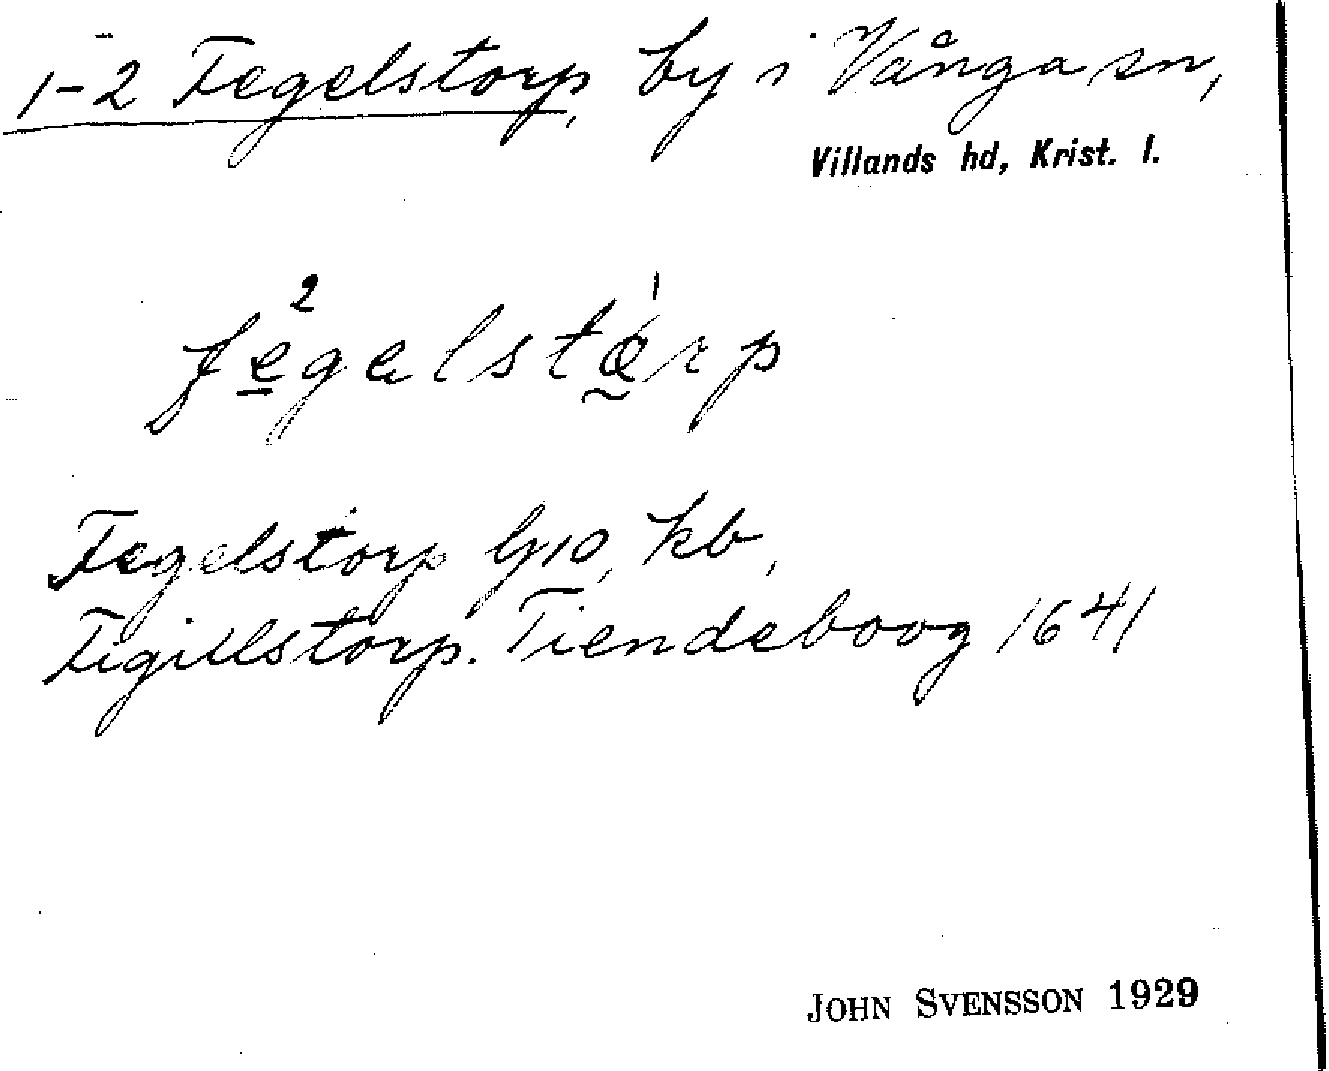 1-2 Fegelstorp, by i Vånga sn,
Villands hd, Krist. l.
Fegelstorp G10, kb,
Figillstorp. Tiendeboog 1641
JOHN SVENSSON 1929